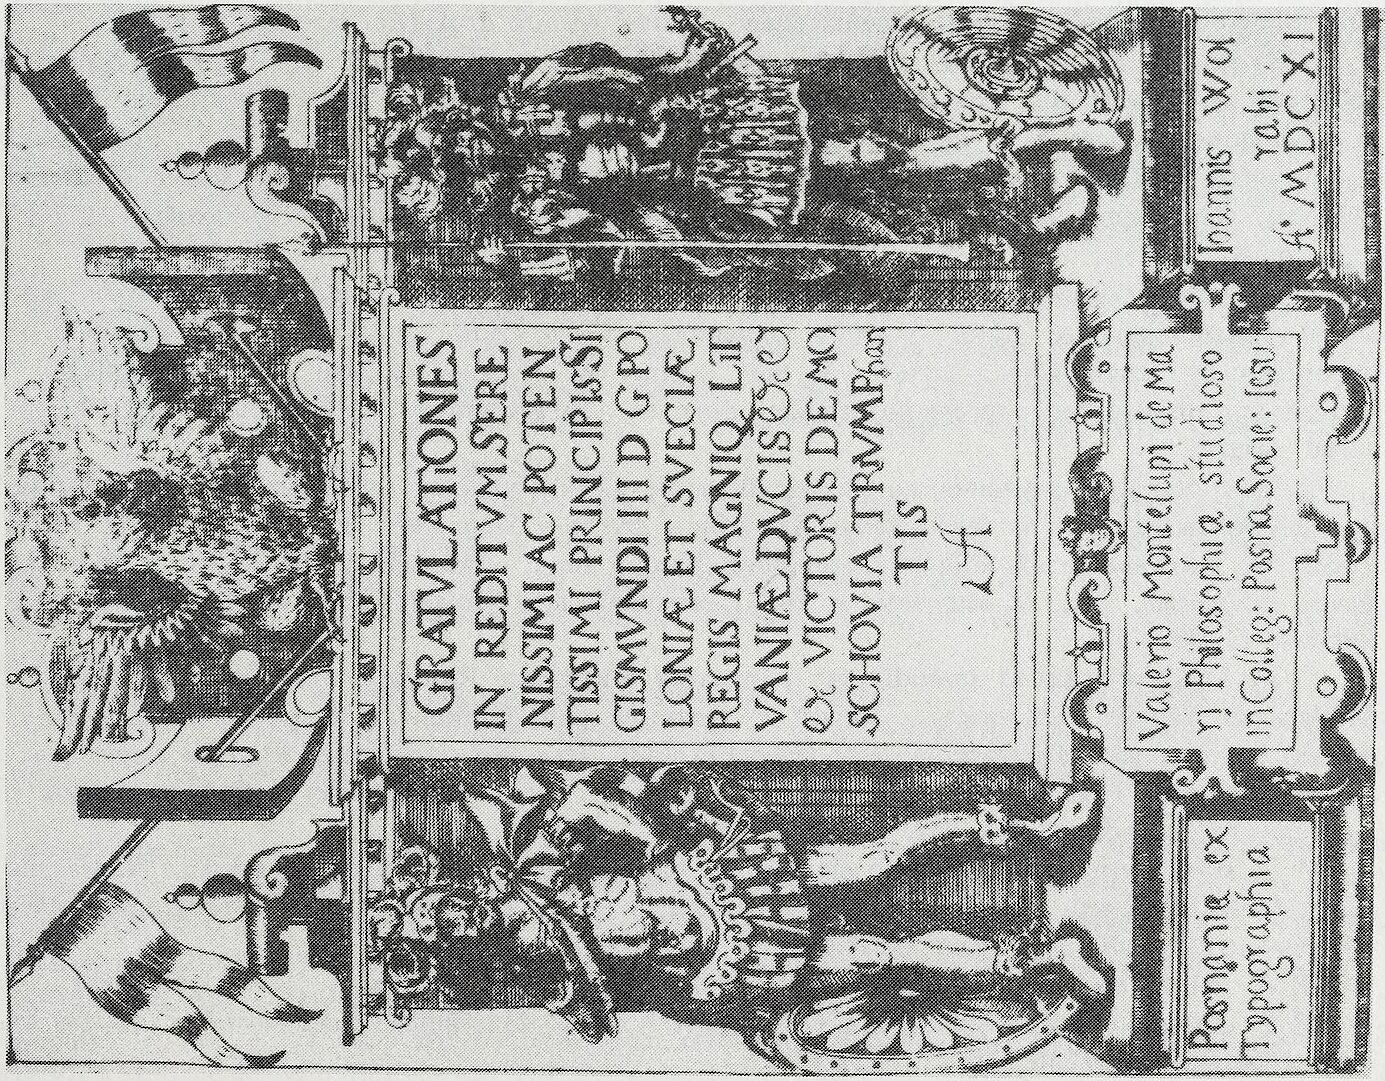 GRATVLATIONES
IN REDITVM SERE
NISSIMI AC POTEN
TISSIMI PRINCIPIS SI
GISMVNDI III D G PO
LONIÆ ET SVECIÆ
REGIS MAGNIQ LIT
VANIÆ DVCIS
VICTORIS DE MO
SCHOVIA TRVMPhan
TIS
Valerio Montelupi de Ma
rj Philosophiæ studioso
in Colleg: Posna Socie: Iesu
Posnaniæ ex
Typographia
Ioannis Wol
rabi
A° MDCXI